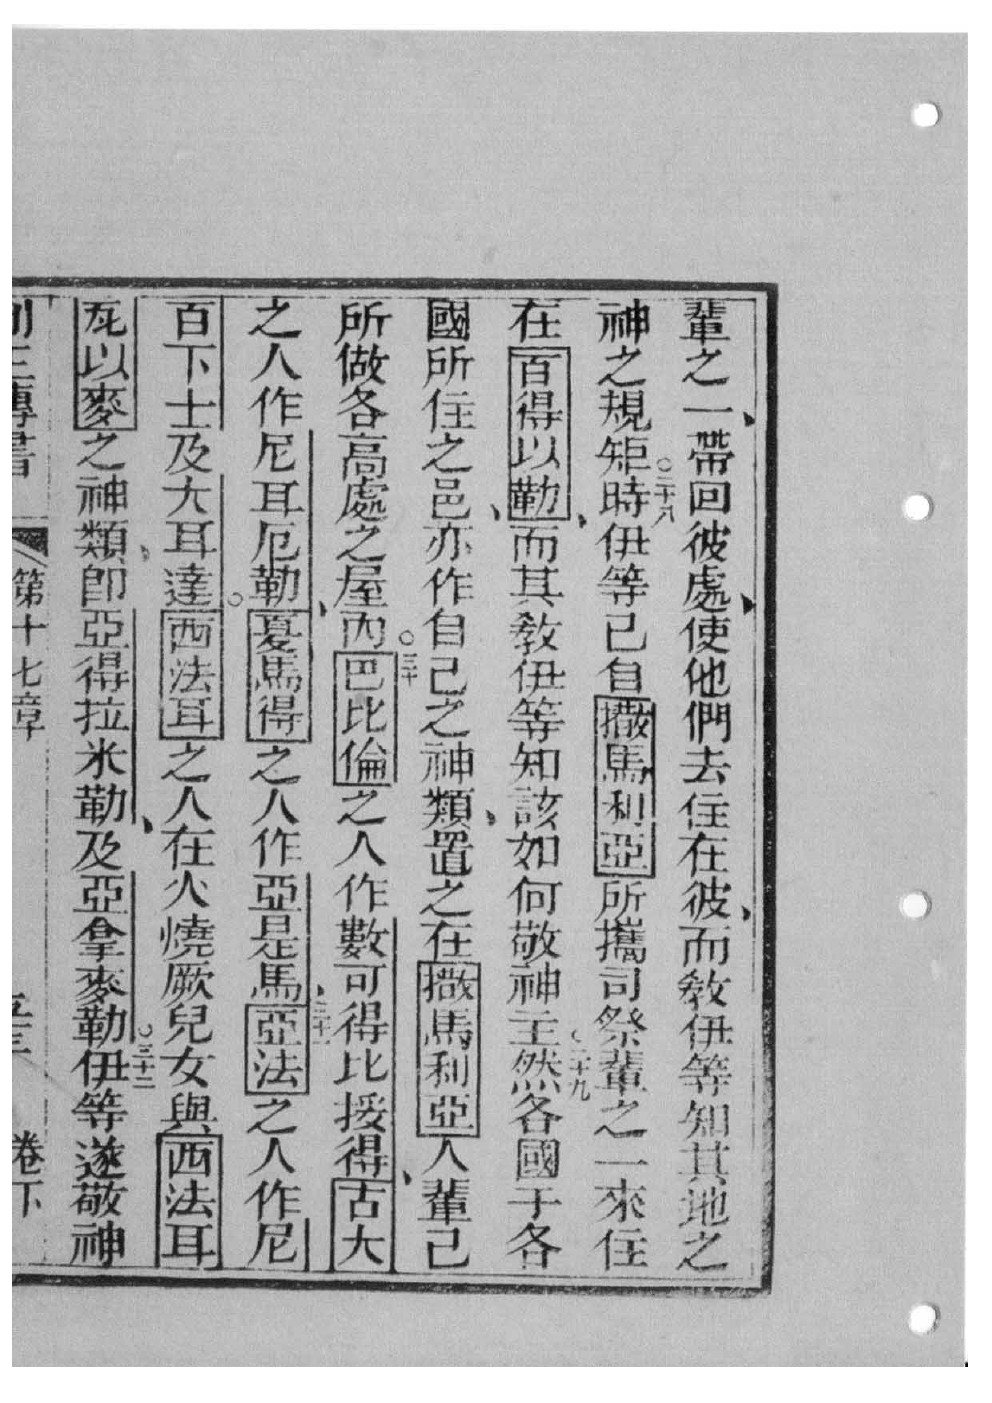 輩之一帶回彼處使他們去住在彼而教伊等知其地之
神之規矩○二十八時伊等已自撒馬利亞所攜司祭輩之一來住
在百得以勒而其教伊等知該如何敬神主○二十九然各國于各
國所住之邑亦作自己之神類置之在撒馬利亞人輩已
所做各高處之屋內○三十巴比倫之人作數可得比接得古大
之人作尼耳厄勒戛馬得之人作亞是馬○三十一亞法之人作尼
百下士及大耳達西法耳之人在火燒厥兒女與西法耳
瓦以麥之神類即亞得拉米勒及亞拿麥勒○三十二伊等遂敬神
第十七章
卷下